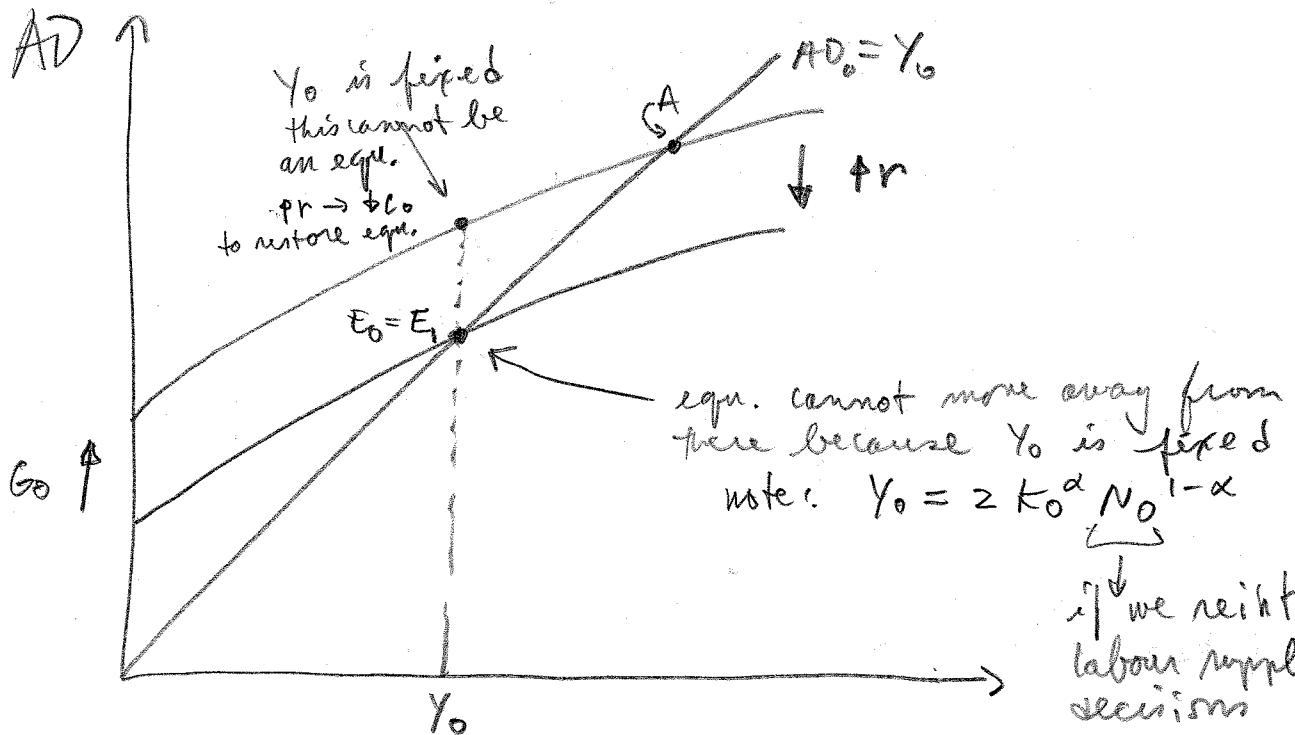 AD
AD₀ = Y₀
Y₀ is fixed
this cannot be
an equ.
↑r → ↓C₀
to restore equ.
A
↓ ↑r
E₀ = E₁
G₀ ↑
equ. cannot move away from
there because Y₀ is fixed
note: Y₀ = z K₀^α N₀^1-α
if we reint
labour suppl
decisions
Y₀